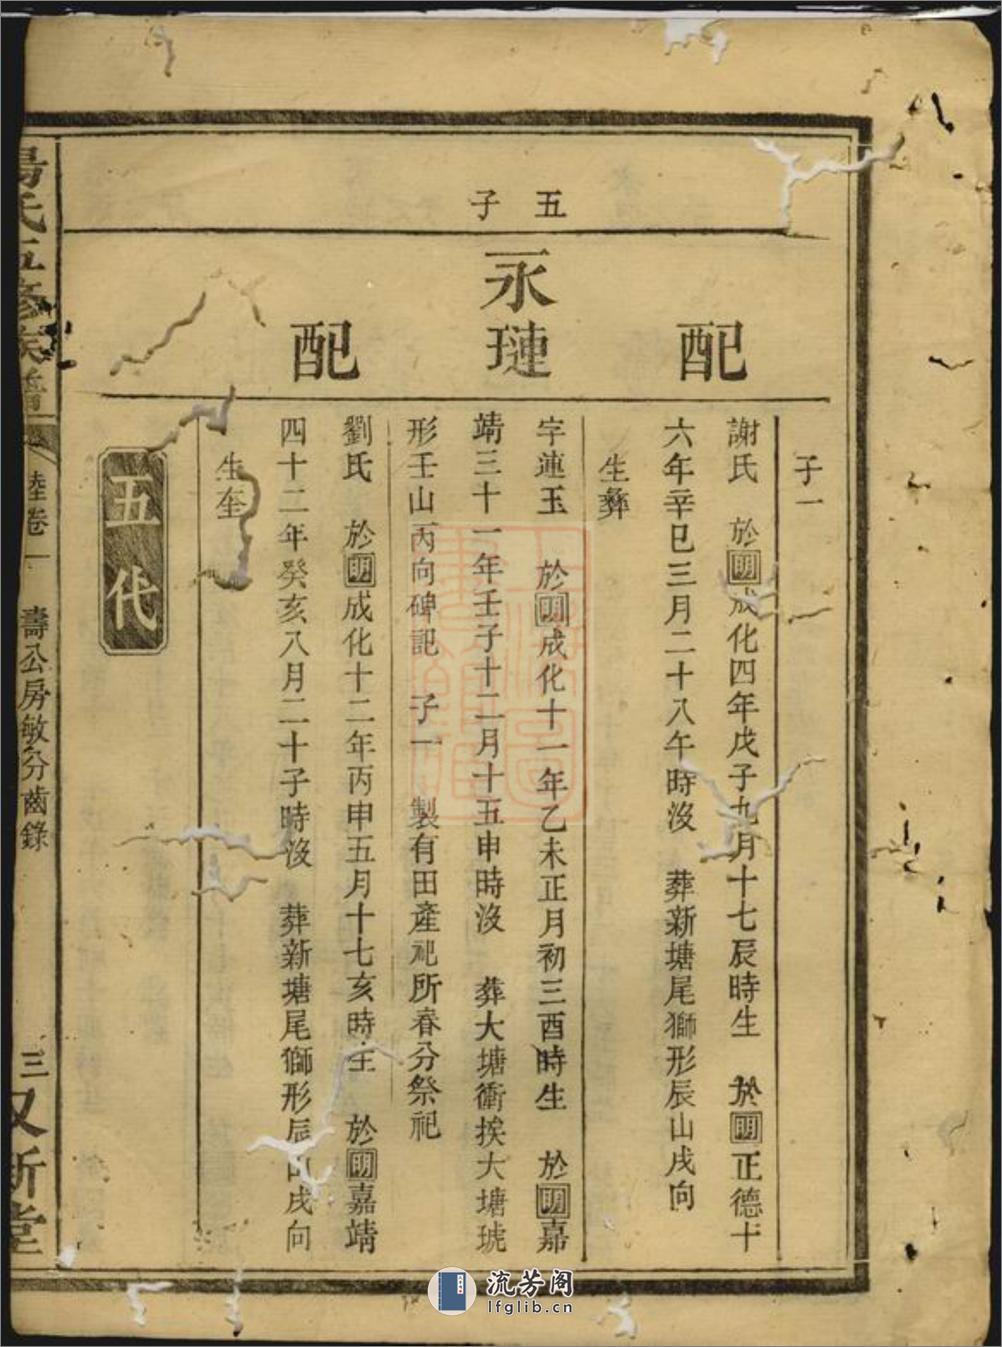 五子
永璉
配
配
子一
謝氏 於明成化四年戊子九月十七辰時生 於明正德十
六年辛巳三月二十八午時沒 葬新塘尾獅形辰山戌向
生彝
字連玉 於明成化十一年乙未正月初三酉時生 於明嘉
靖三十一年壬子十二月十五申時沒 葬大塘衝挨大塘琥
形壬山丙向碑記 子一 製有田產祀所春分祭祀
劉氏 於明成化十二年丙申五月十七亥時生 於明嘉靖
四十二年癸亥八月二十子時沒 葬新塘尾獅形辰山戌向
生奎
五代
氏五修族譜
陸卷一
壽公房敏分齒錄
三
又新堂
流芳阁
lfglib.cn